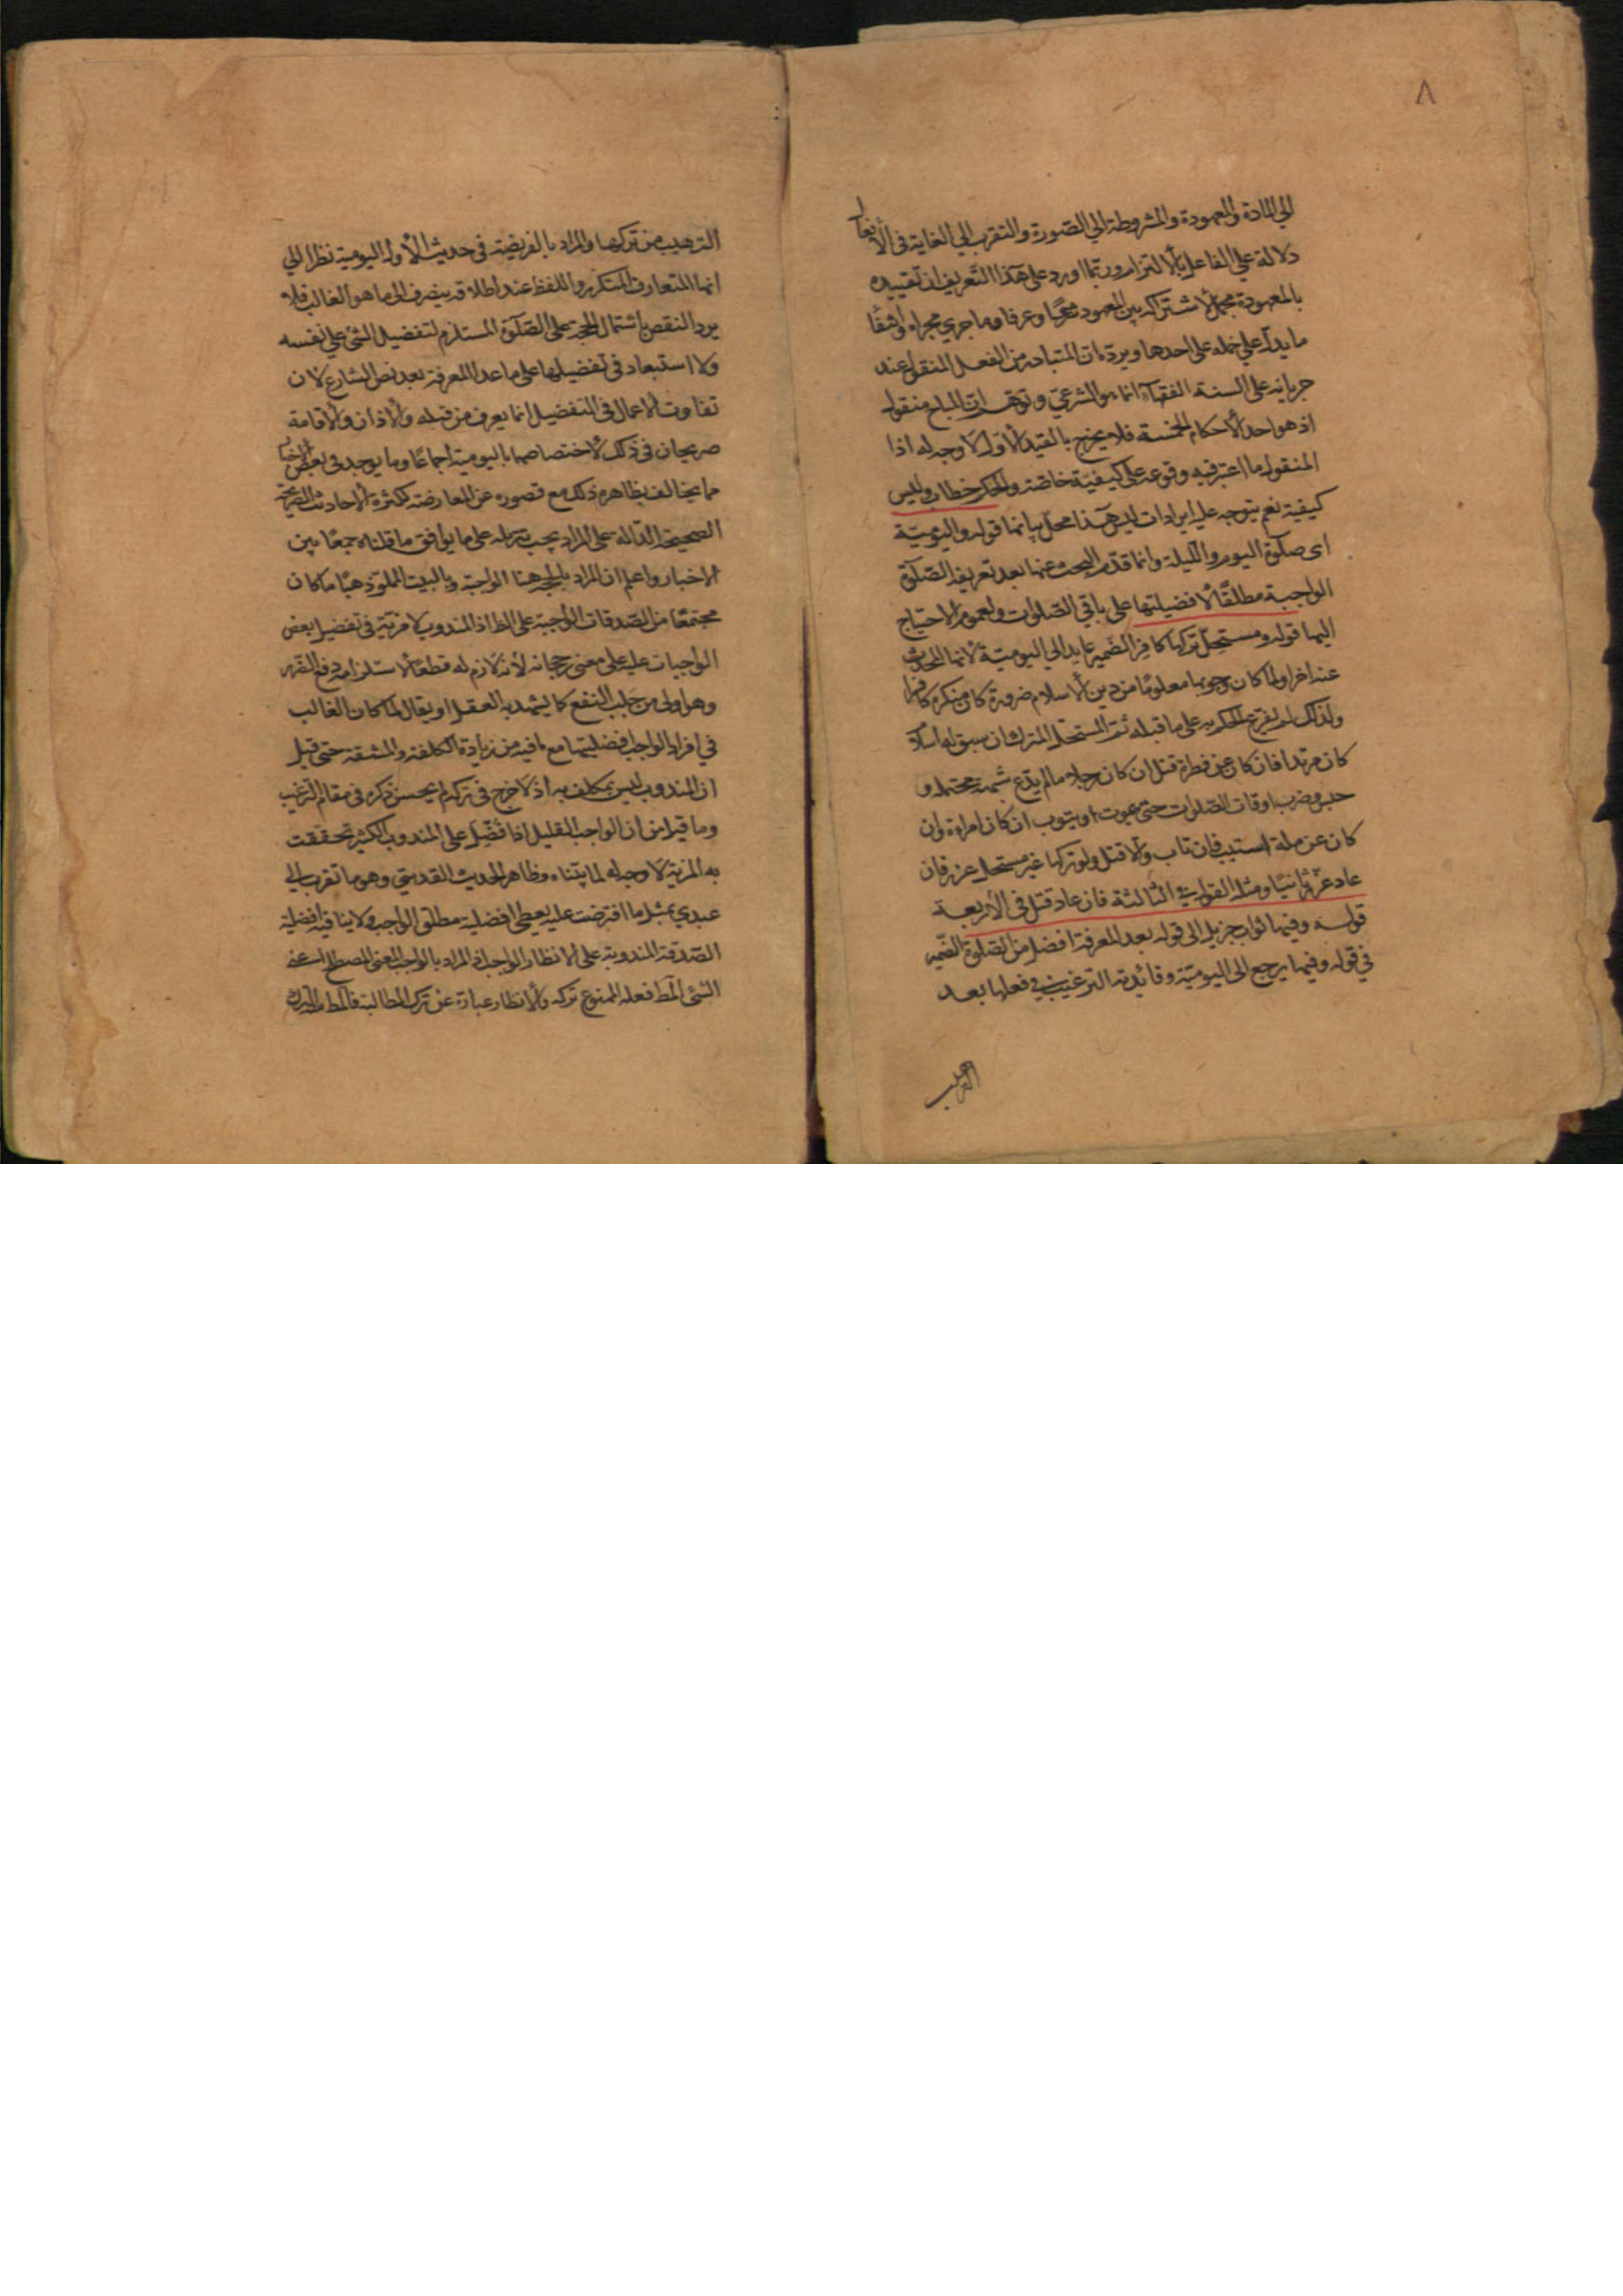 ٨
الي المادة والمعهودة والمشروطة الي الصّورة والتقرب الي الغاية في الأفعال
دلالة علي الفاعل بالالتزام وربّما اورد علي هذا التّعريف ان تقييده
بالمعهودة مجمل لاشتراكه بين المعهود شرعًا وعرفا وما جري مجراه وانتفا
ما يدلّ علي حمله على احدها ويردّ بان المتبادر من الفعل المنقول عند
جريانه على السنة الفقهآء انما هو الشرعيّ وتوهّم ان المباح منقول
اذ هو احد الأحكام الخمسة فلا يخرج بالقيد الأول لا وجه له اذا
المنقول ما اعتبر فيه وقوعه على كيفيّة خاصّة والحكم خطاب وليس
كيفية نعم يتوجه عليه ايرادات ليس هذا محلّ بيانها قوله واليوميّة
اى صلوة اليوم والليلة وانما قدّم البحث عنها بعد تعريف الصّلوة
الواجبة مطلقًا لأفضيليتها على باقي الصّلوات ولعموم الاحتياج
اليها قوله ومستحلّ تركها كافر الضمير عايد الي اليوميّة لأنها المحدّث
عنه اخرا ولما كان وجوبها معلومًا من دين الأسلام ضرورة كان منكره كافرا
ولذلك لم يفرّع الحكم به على ما قبله ثمّ المستحلّ المترك ان سبق له اسلام
كان مرتدا فان كان عن فطرة قتل ان كان رجلا ما لم يدّع شبهة محتملة و
حبس وضرب اوقات الصّلوات حتى يموت او يتوب ان كان امراءة وان
كان عن ملة استتيب فان تاب والا قتل ولو تركها غير مستحل عزّر فان
عاد عزّر ثانيًا ومثله القول في الثالثة فان عاد قتل في الأربعة
قوله وفيها ثواب جزيل الى قوله بعد المعرفة افضل من الصّلوة الضّمير
في قوله وفيها يرجع الى اليوميّة وفائدته الترغيب في فعلها بعد
الترهيب
الترهيب من تركها والمراد بالفريضة في حديث الأول اليومية نظرا الي
انها المتعارف المتكرر واللفظ عند اطلاقه ينصرف الى ما هو الغالب فلا
يرد النقص باشتمال الحجة على الصّلوة المستلزم لتفضيل الشئ علي نفسه
ولا استبعاد في تفضيلها على ما عدا المعرفة بعد نص الشارع لان
تفاوت الاعمال في التفضيل انما يعرف من قبله والأذان والأقامة
صريحان في ذلك لاختصاصهما باليومية اجماعًا وما يوجد في بعض الأخبار
مما يخالف بظاهره ذلك مع قصوره عن المعارضة لكثرة الأحاديث الصريحة
الصحيحة الدّالة على المراد يجب تنزيله على ما يوافق ما قلناه جمعًا بين
الاخبار واعلم ان المراد بالحجة هنا الواجبة وبالبيت المملوّ ذهبًا ما كان
مجتمعًا من الصّدقات الواجبة على الظ اذ المندوب لا مزيّة في تفضيل بعض
الواجبات عليه على معنى رجحانه لأنه لازم له قطعًا لاستلزامه دفع الضّرر
وهو اولى من جلب النفع كما يشهد به العقل او يقال لما كان الغالب
في افراد الواجب افضليتها مع ما فيه من زيادة الكلفة والمشقة حتى قيل
ان المندوب ليس بمكلف به اذ لا حرج في تركه لم يحسن ذكره في مقام الترغيب
وما قيل من ان الواجب القليل اذا فُضّل على المندوب الكثير تحققت
به المزية لا وجه له لما بيّنّاه وظاهر الحديث القدسيّ وهو ما تقرب الي
عبدي بمثل ما افترضت عليه يعطي افضلية مطلق الواجب ولا ينافيه افضلية
الصّدقة المندوبة على الانظار الواجب اذ المراد بالواجب المعنى المصطلح اعنى
الشئ المط فعله الممنوع تركه والانظار عبارة عن ترك المطالبة فالمط الترك